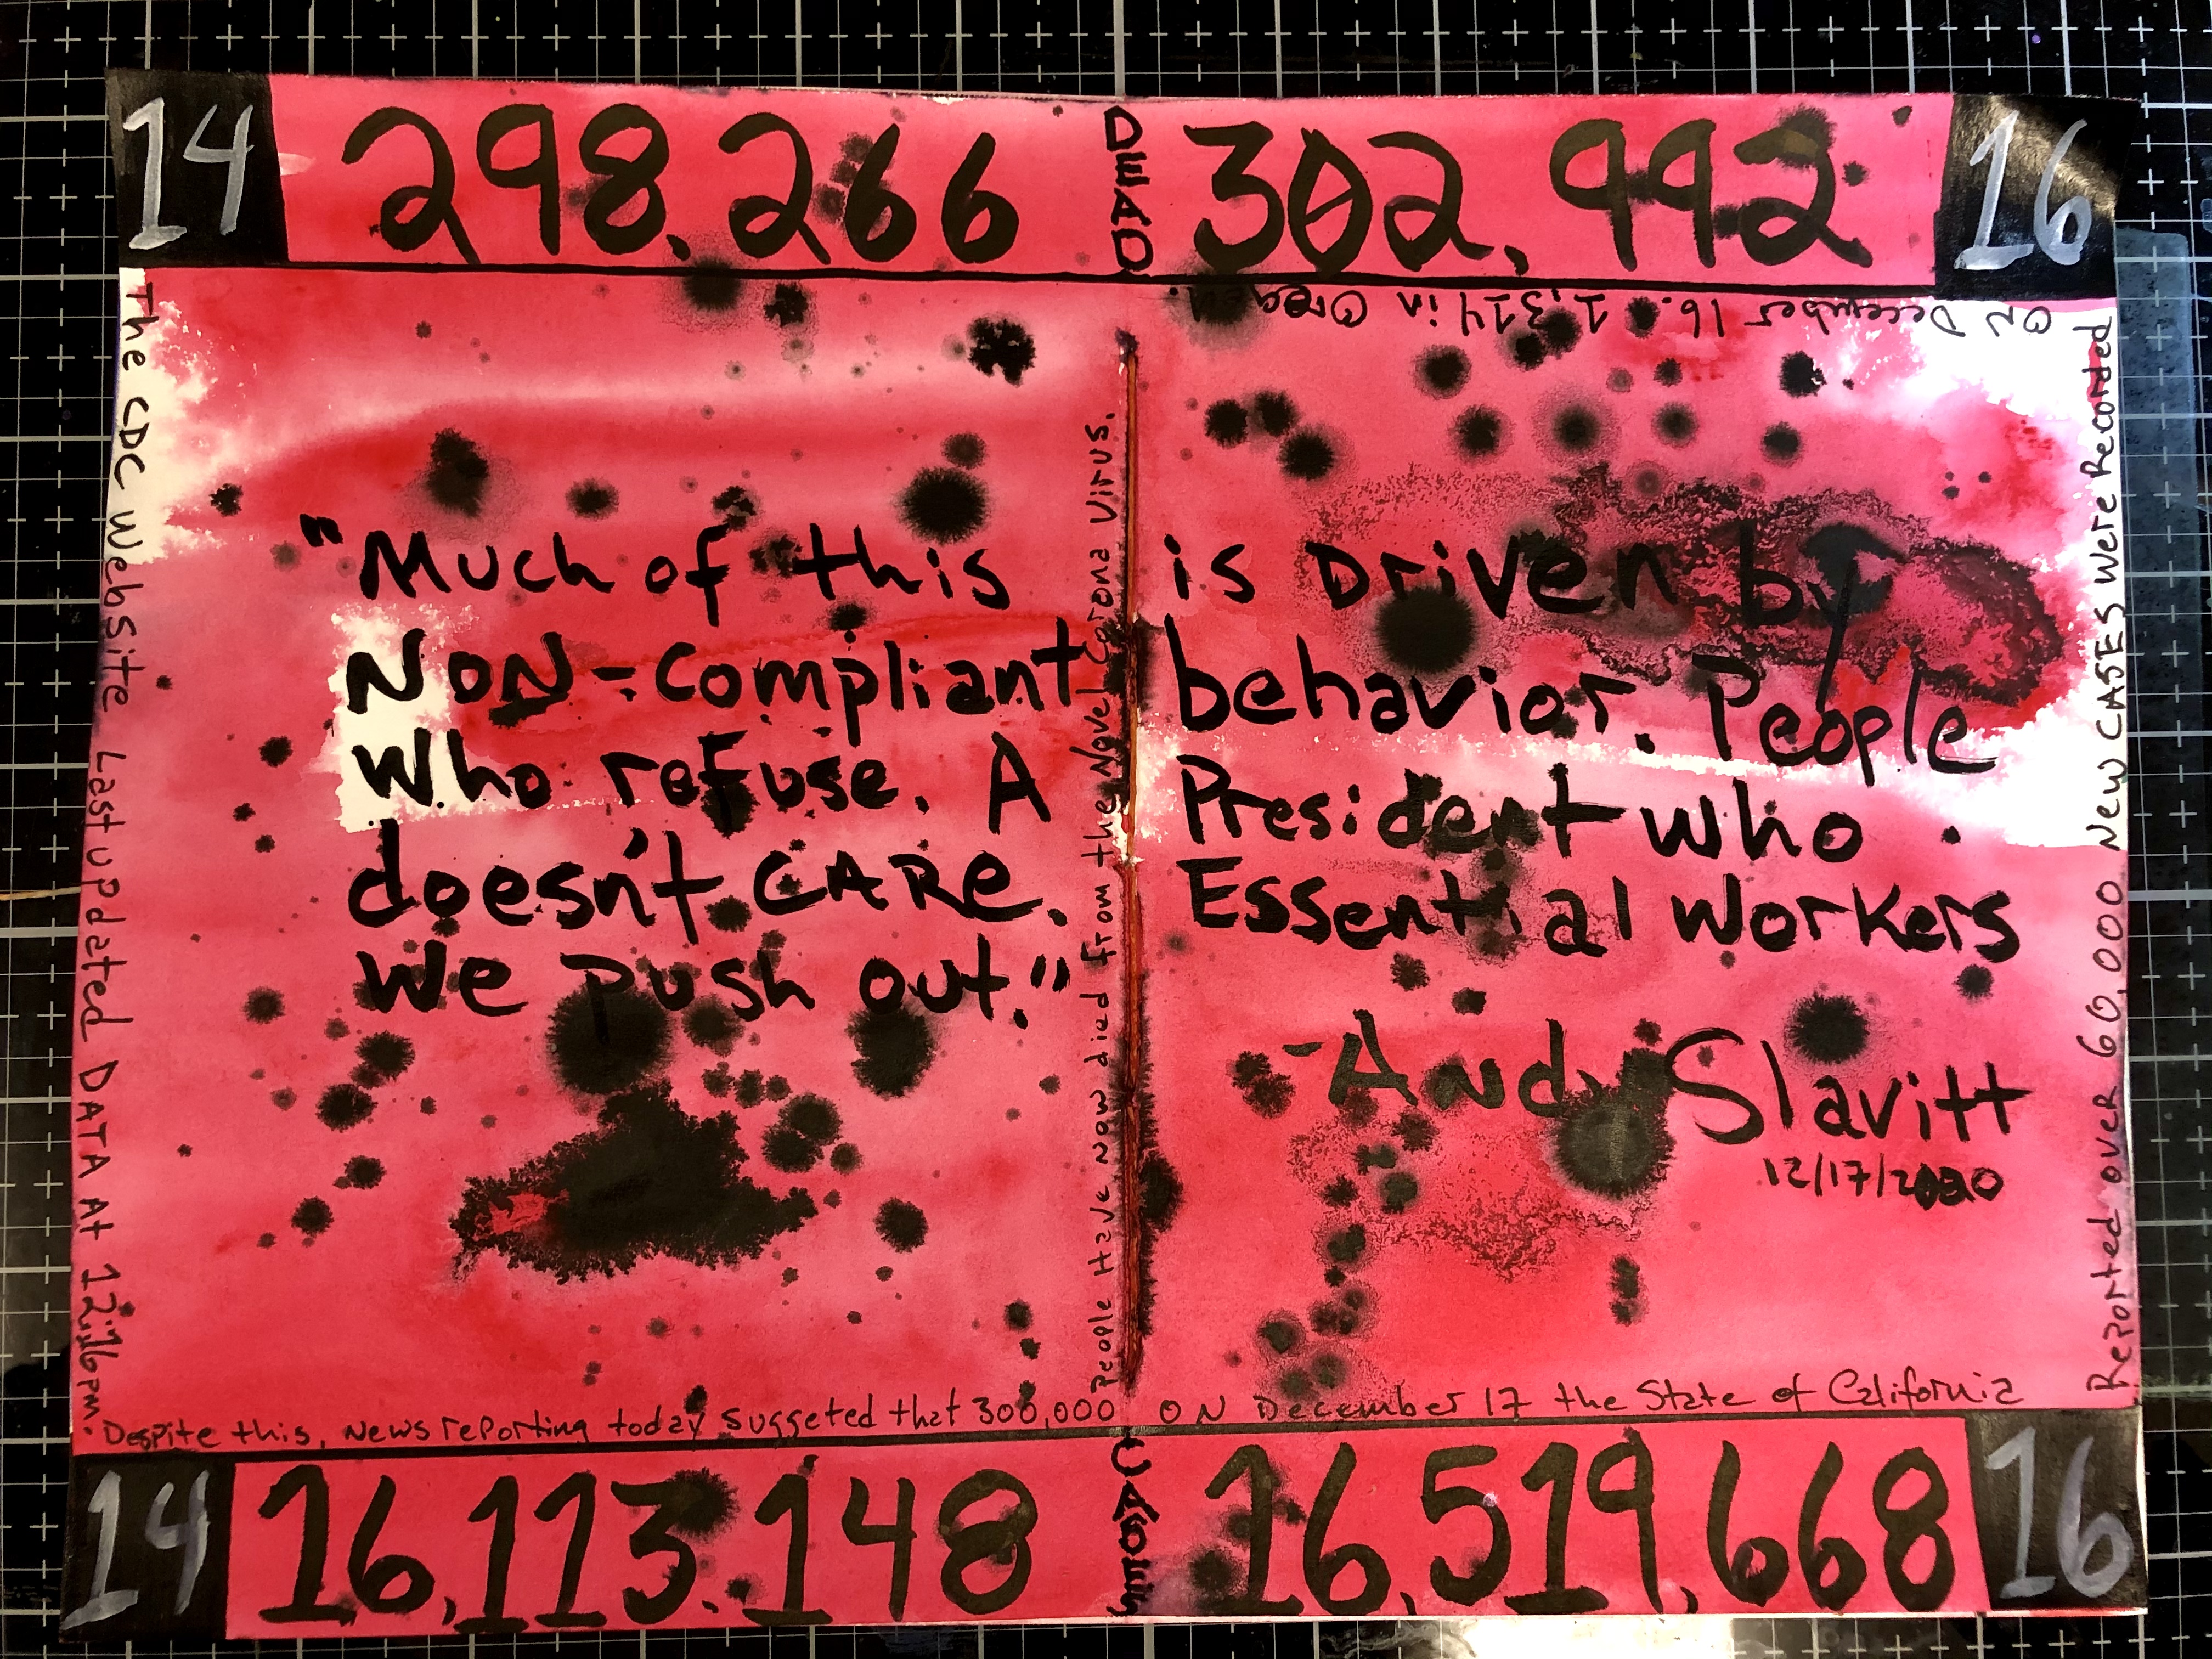 14 298,266 DEAD 302,992 16
"Much of this is Driven by
NON-compliant behavior. People
Who refuse. A President who
doesn't CARE. Essential Workers
We push out."
-Andy Slavitt
12/17/2020
The CDC Website Last updated DATA At 12:16pm.
Despite this, News reporting today suggeted that 300,000
People Have Now died From the Novel Corona Virus.
ON December 17 the State of California
Reported over 60,000 New CASES Were Recorded
ON December 16. 1,314 in Oregon.
14 16,113,148 16,519,668 16